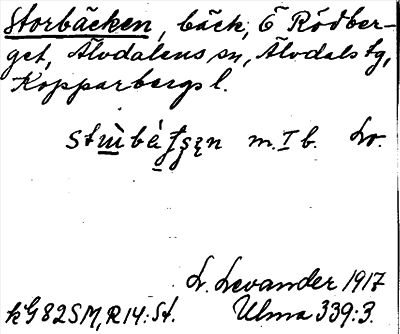 Storbäcken, bäck, Ö Rödber-
get, Älvdalens sn, Älvdals tg,
Kopparbergs l.
m. I b. Lv.
L. Levander 1917
kG82SM, R14: St. Ulma 339:3.